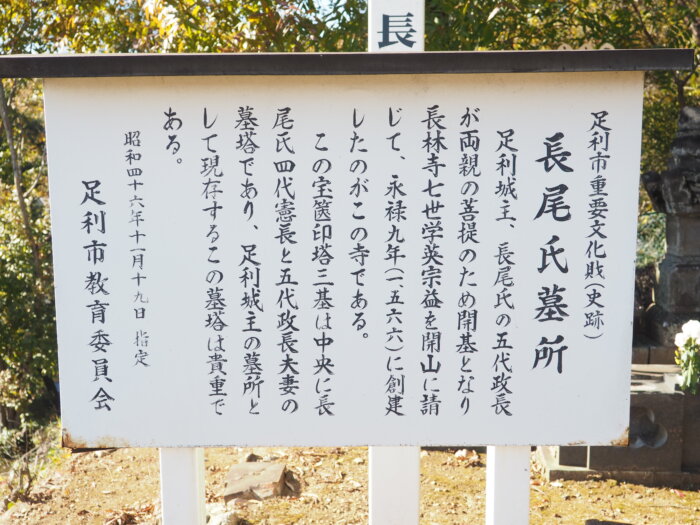 長
足利市重要文化財(史跡)
長尾氏墓所
足利城主、長尾氏の五代政長
が両親の菩提のため開基となり
長林寺七世学英宗益を開山に請
じて、永禄九年(一五六六)に創建
したのがこの寺である。
この宝篋印塔三基は中央に長
尾氏四代憲長と五代政長夫妻の
墓塔であり、足利城主の墓所と
して現存するこの墓塔は貴重で
ある。
昭和四十六年十一月十九日 指定
足利市教育委員会